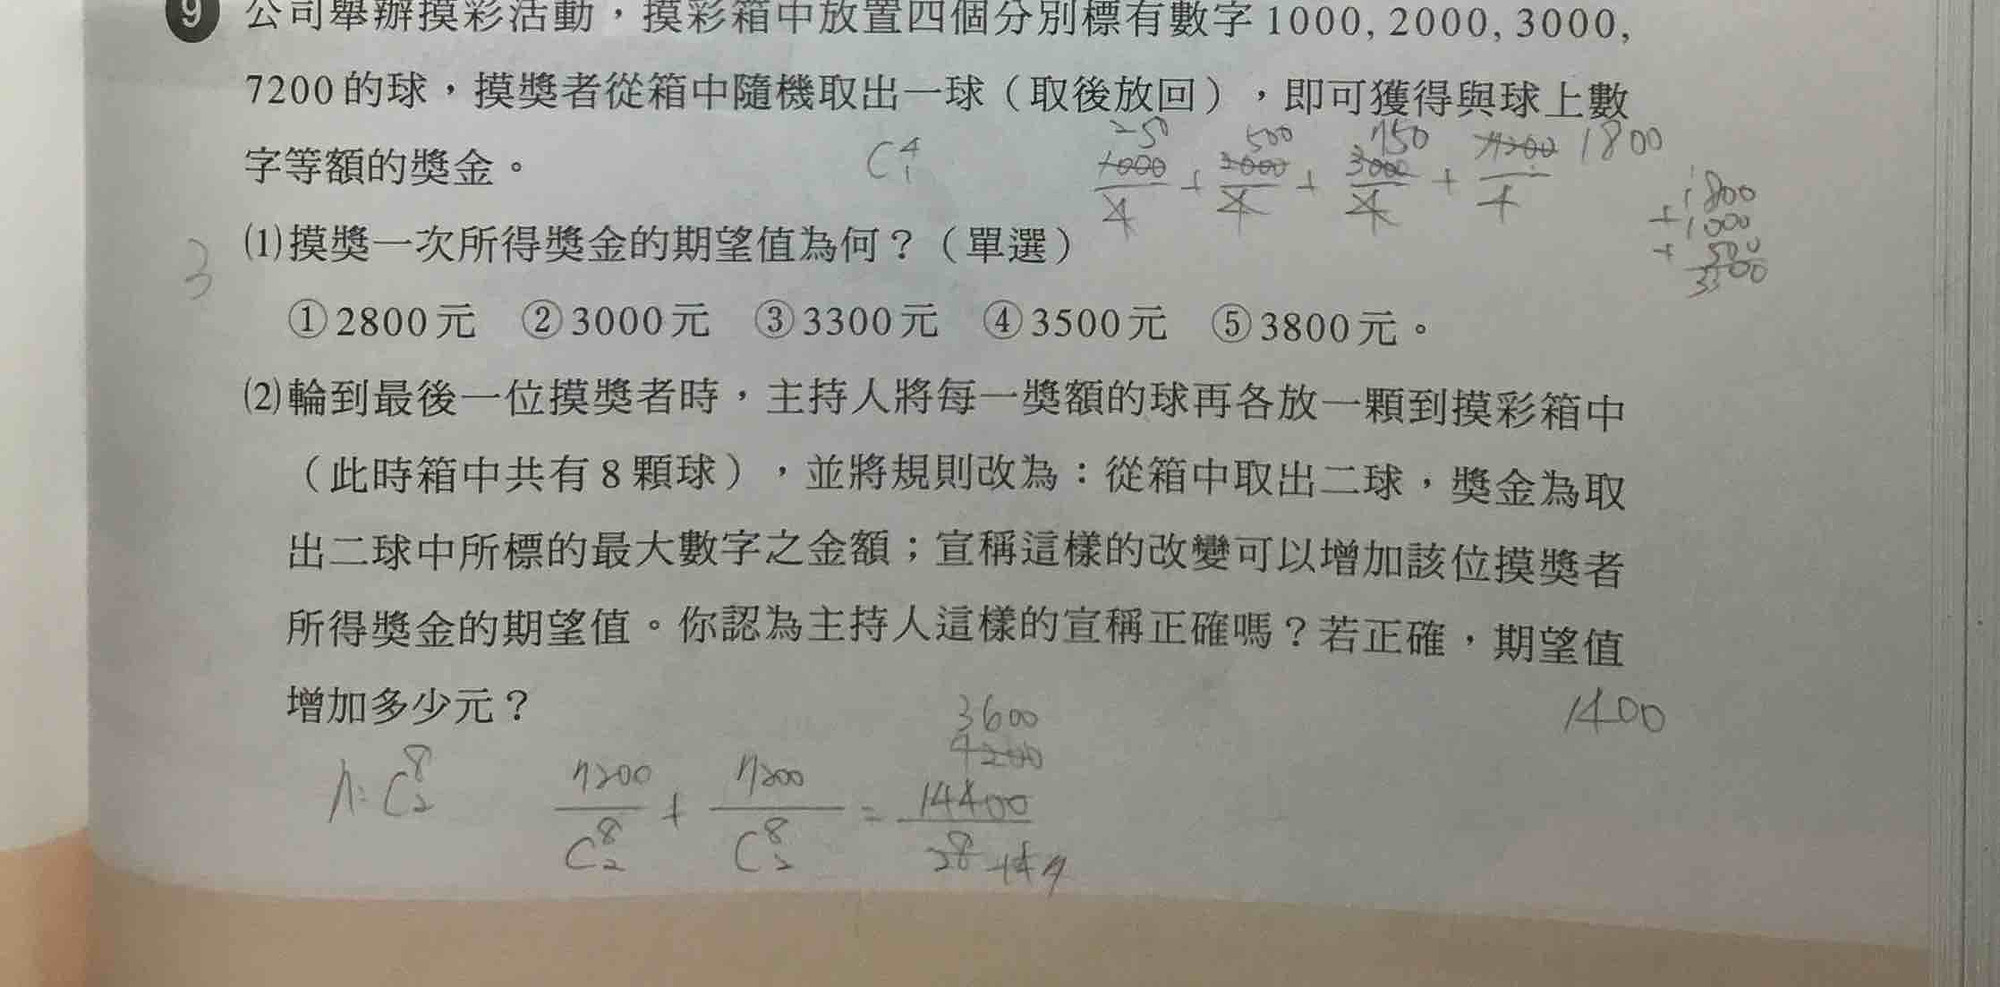 9 公司舉辦摸彩活動，摸彩箱中放置四個分別標有數字 1000, 2000, 3000,
7200 的球，摸獎者從箱中隨機取出一球（取後放回），即可獲得與球上數
字等額的獎金。
C⁴₁
250 500 750 1800
1000/4 + 2000/4 + 3000/4 + 7200/4
1800
+1000
+ 500
3300
3
⑴摸獎一次所得獎金的期望值為何？（單選）
①2800元 ②3000元 ③3300元 ④3500元 ⑤3800元。
⑵輪到最後一位摸獎者時，主持人將每一獎額的球再各放一顆到摸彩箱中
（此時箱中共有 8 顆球），並將規則改為：從箱中取出二球，獎金為取
出二球中所標的最大數字之金額；宣稱這樣的改變可以增加該位摸獎者
所得獎金的期望值。你認為主持人這樣的宣稱正確嗎？若正確，期望值
增加多少元？
1400
n: C⁸₂
7200/C⁸₂ + 7200/C⁸₂ = 14400/28
3600